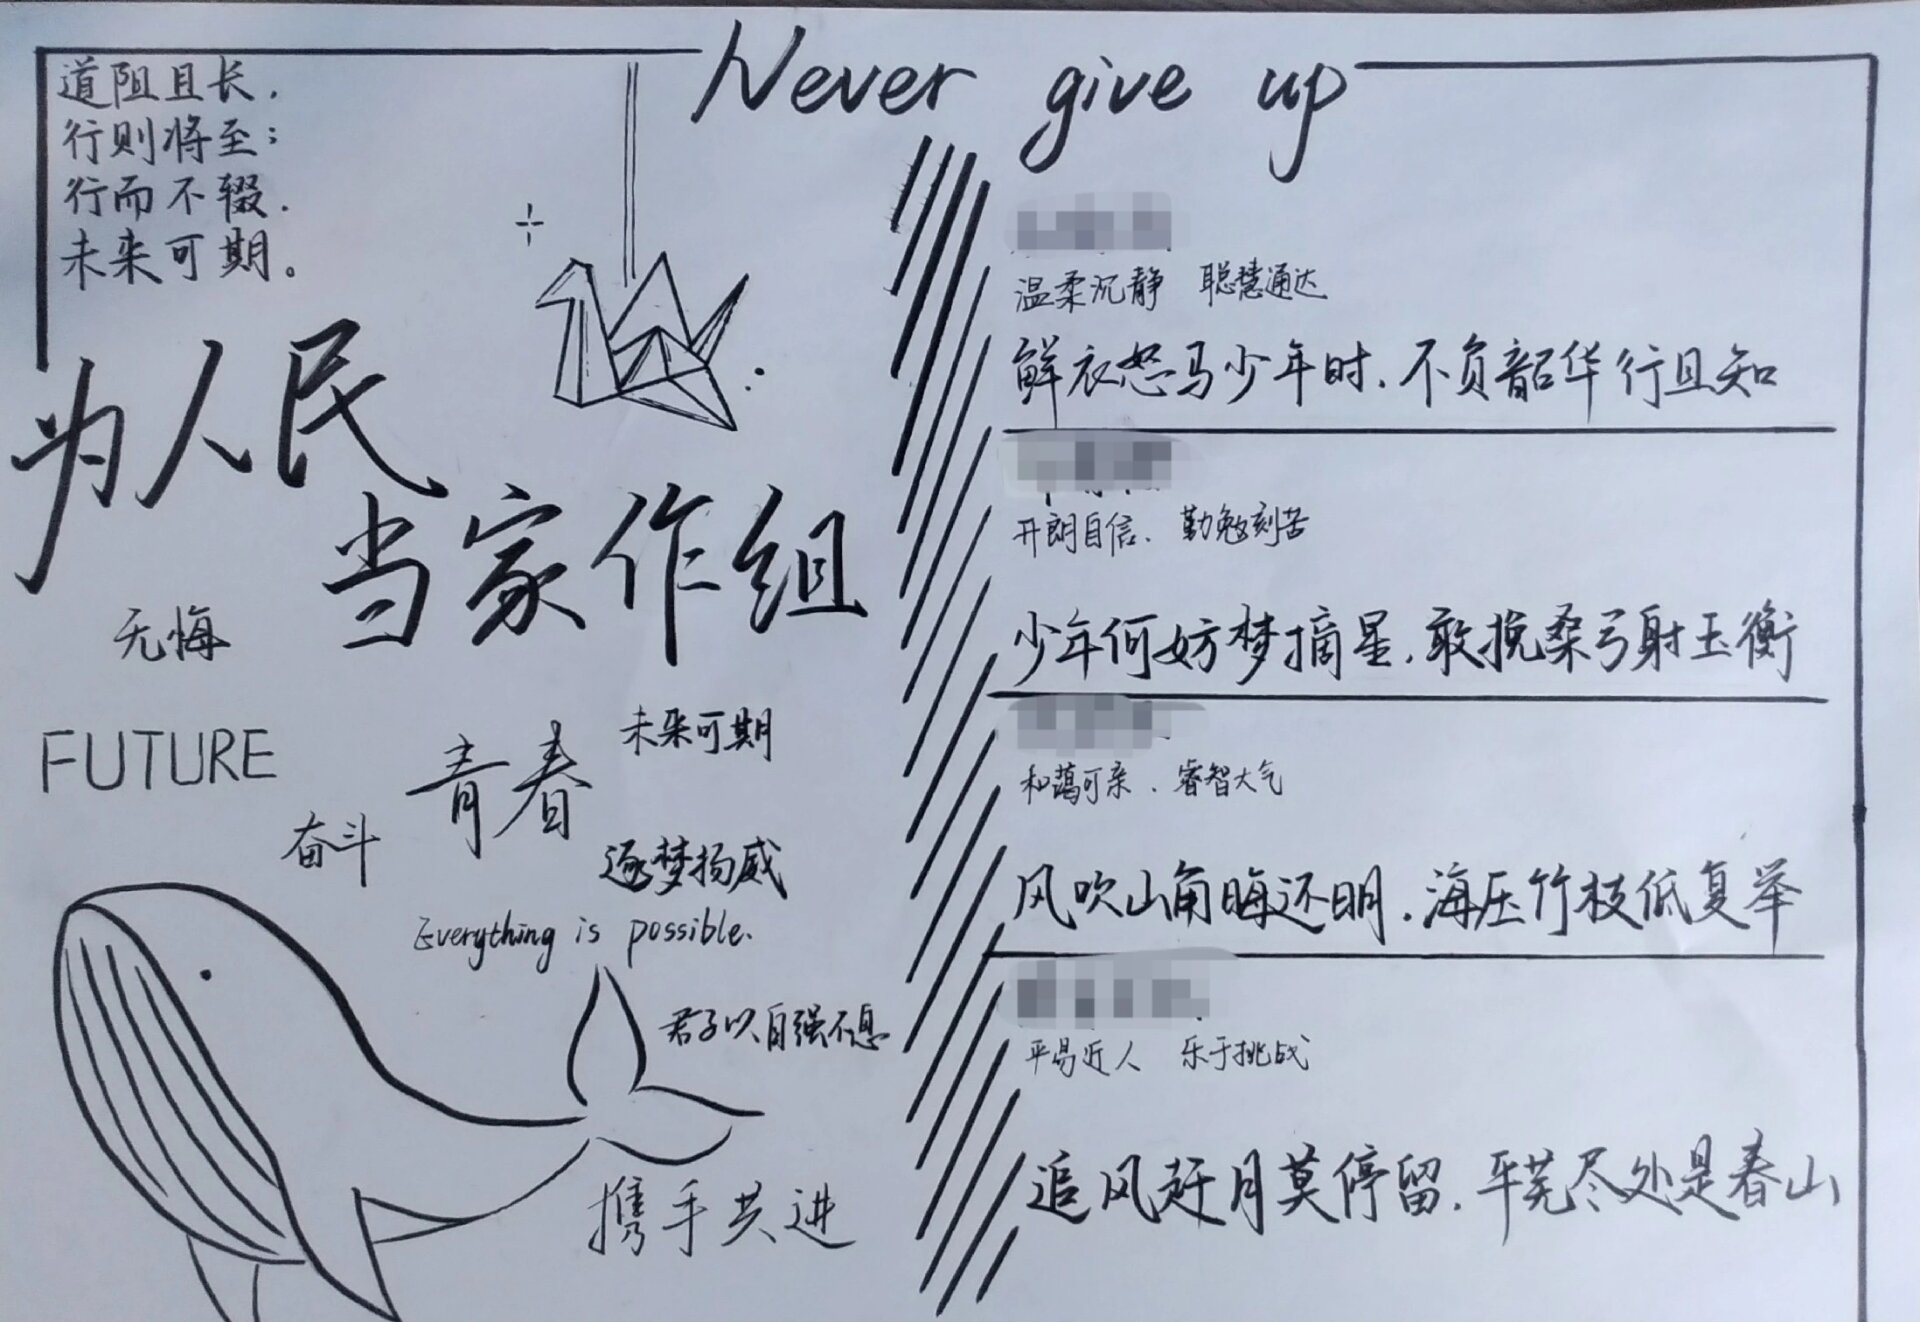 Never give up
道阻且长，
行则将至；
行而不辍，
未来可期。
为人民
当家作组
无悔
FUTURE
未来可期
青春
奋斗
逐梦扬威
Everything is possible.
君子以自强不息
携手共进
温柔沉静 聪慧通达
鲜衣怒马少年时，不负韶华行且知
开朗自信、勤勉刻苦
少年何妨梦摘星，敢挽桑弓射玉衡
和蔼可亲、睿智大气
风吹山角晦还明，海压竹枝低复举
平易近人 乐于挑战
追风赶月莫停留，平芜尽处是春山